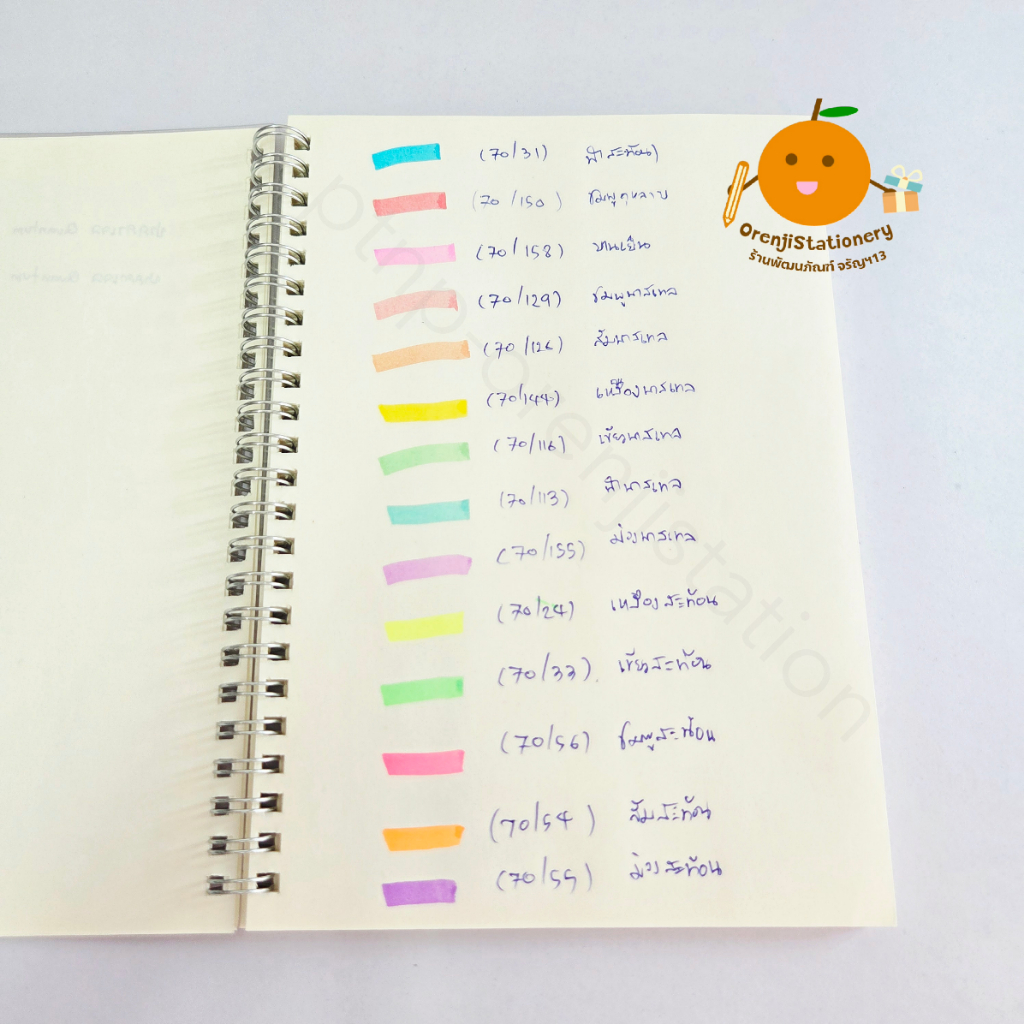 OrenjiStationery
ร้านพัฒนภัณฑ์ จรัญฯ13
(70/31) ฟ้าสะท้อน
(70/150) ชมพูกุหลาบ
(70/158) บานเย็น
(70/129) ชมพูพาสเทล
(70/126) ส้มพาสเทล
(70/144) เหลืองพาสเทล
(70/116) เขียวพาสเทล
(70/113) ฟ้าพาสเทล
(70/155) ม่วงพาสเทล
(70/24) เหลืองสะท้อน
(70/33) เขียวสะท้อน
(70/56) ชมพูสะท้อน
(70/54) ส้มสะท้อน
(70/55) ม่วงสะท้อน
ptnp-orenjistation